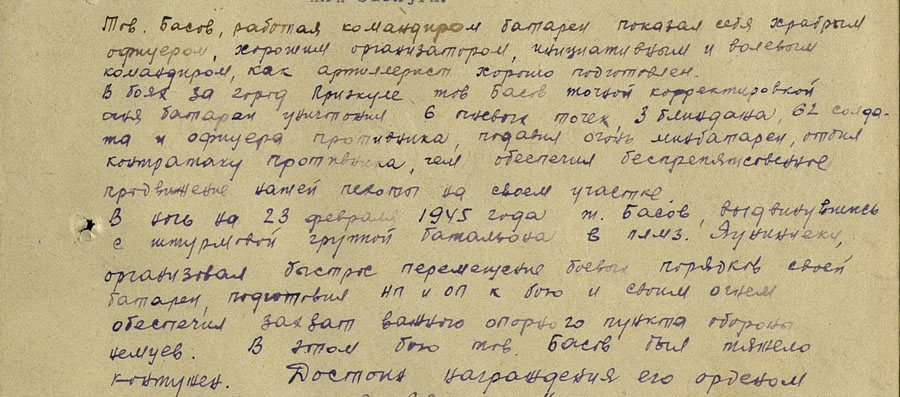 Тов. Басов, работая командиром батареи показал себя храбрым
офицером, хорошим организатором, инициативным и волевым
командиром, как артиллерист хорошо подготовлен.
В боях за город Приэкуле тов Басов точной корректировкой
огня батареи уничтожил 6 огневых точек, 3 блиндажа, 62 солда-
та и офицера противника, подавил огонь минбатареи, отбил
контратаку противника, чем обеспечил беспрепятственное
продвижение нашей пехоты на своем участке
В ночь на 23 февраля 1945 года т. Басов, выдвинувшись
с штурмовой группой батальона в
организовал быстрое перемещение боевых порядков своей
батареи, подготовил НП и ОП к бою и своим огнем
обеспечил захват важного опорного пункта обороны
немцев. В этом бою тов. Басов был тяжело
контужен. Достоин награждения его орденом